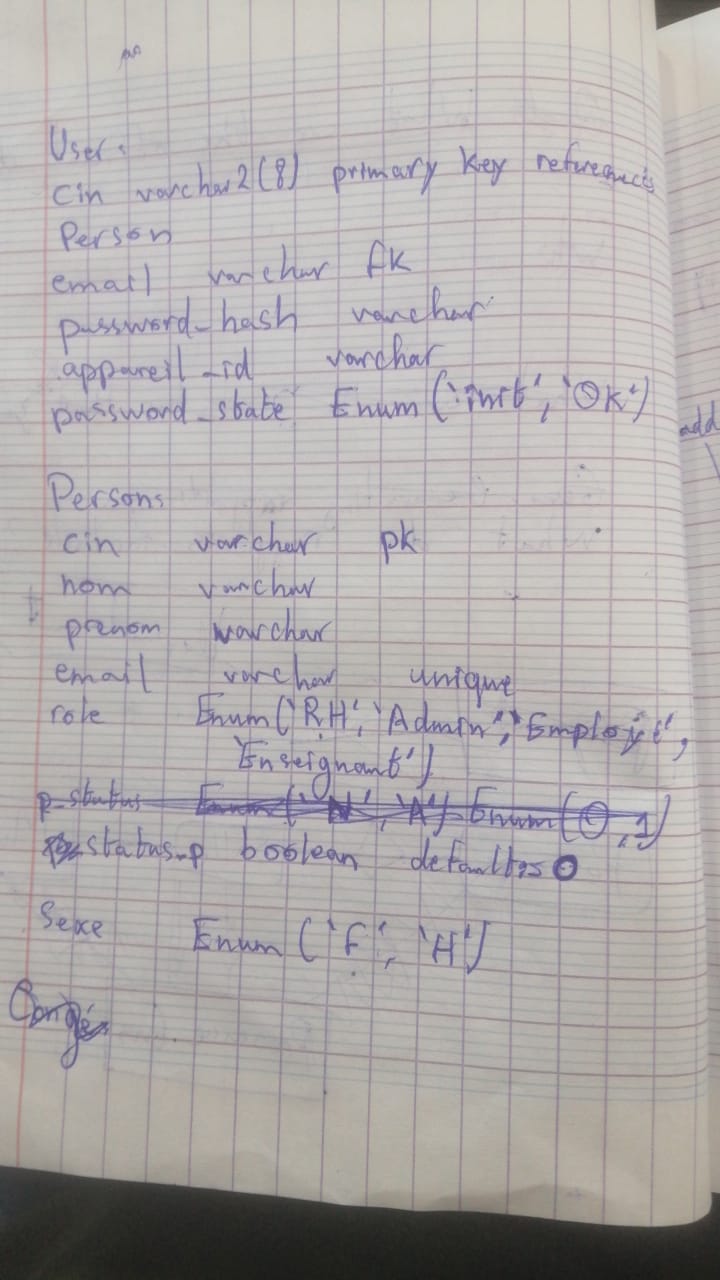 User:
Cin varchar2(8) primary key references
Person
email varchar fk
password_hash varchar
appareil_id varchar
password_state Enum('init', 'Ok')
add
Persons
cin varchar pk
nom varchar
prenom varchar
email varchar unique
role Enum('RH', 'Admin', 'Employé',
'Enseignant')
p_status Enum('N', 'A') Enum(0,1)
status_p boolean default 0
Sexe Enum ('F', 'H')
Congé